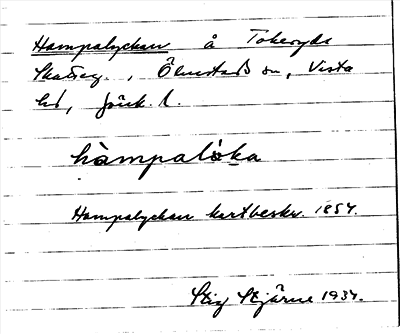 Hampalyckan å Tokeryds
Skatteg., Ölmstads sn, Vista
hd, Jönk. l.
hàmpalỳka
Hampalyckan kartbeskr. 1854.
Stig Stjärne 1934.